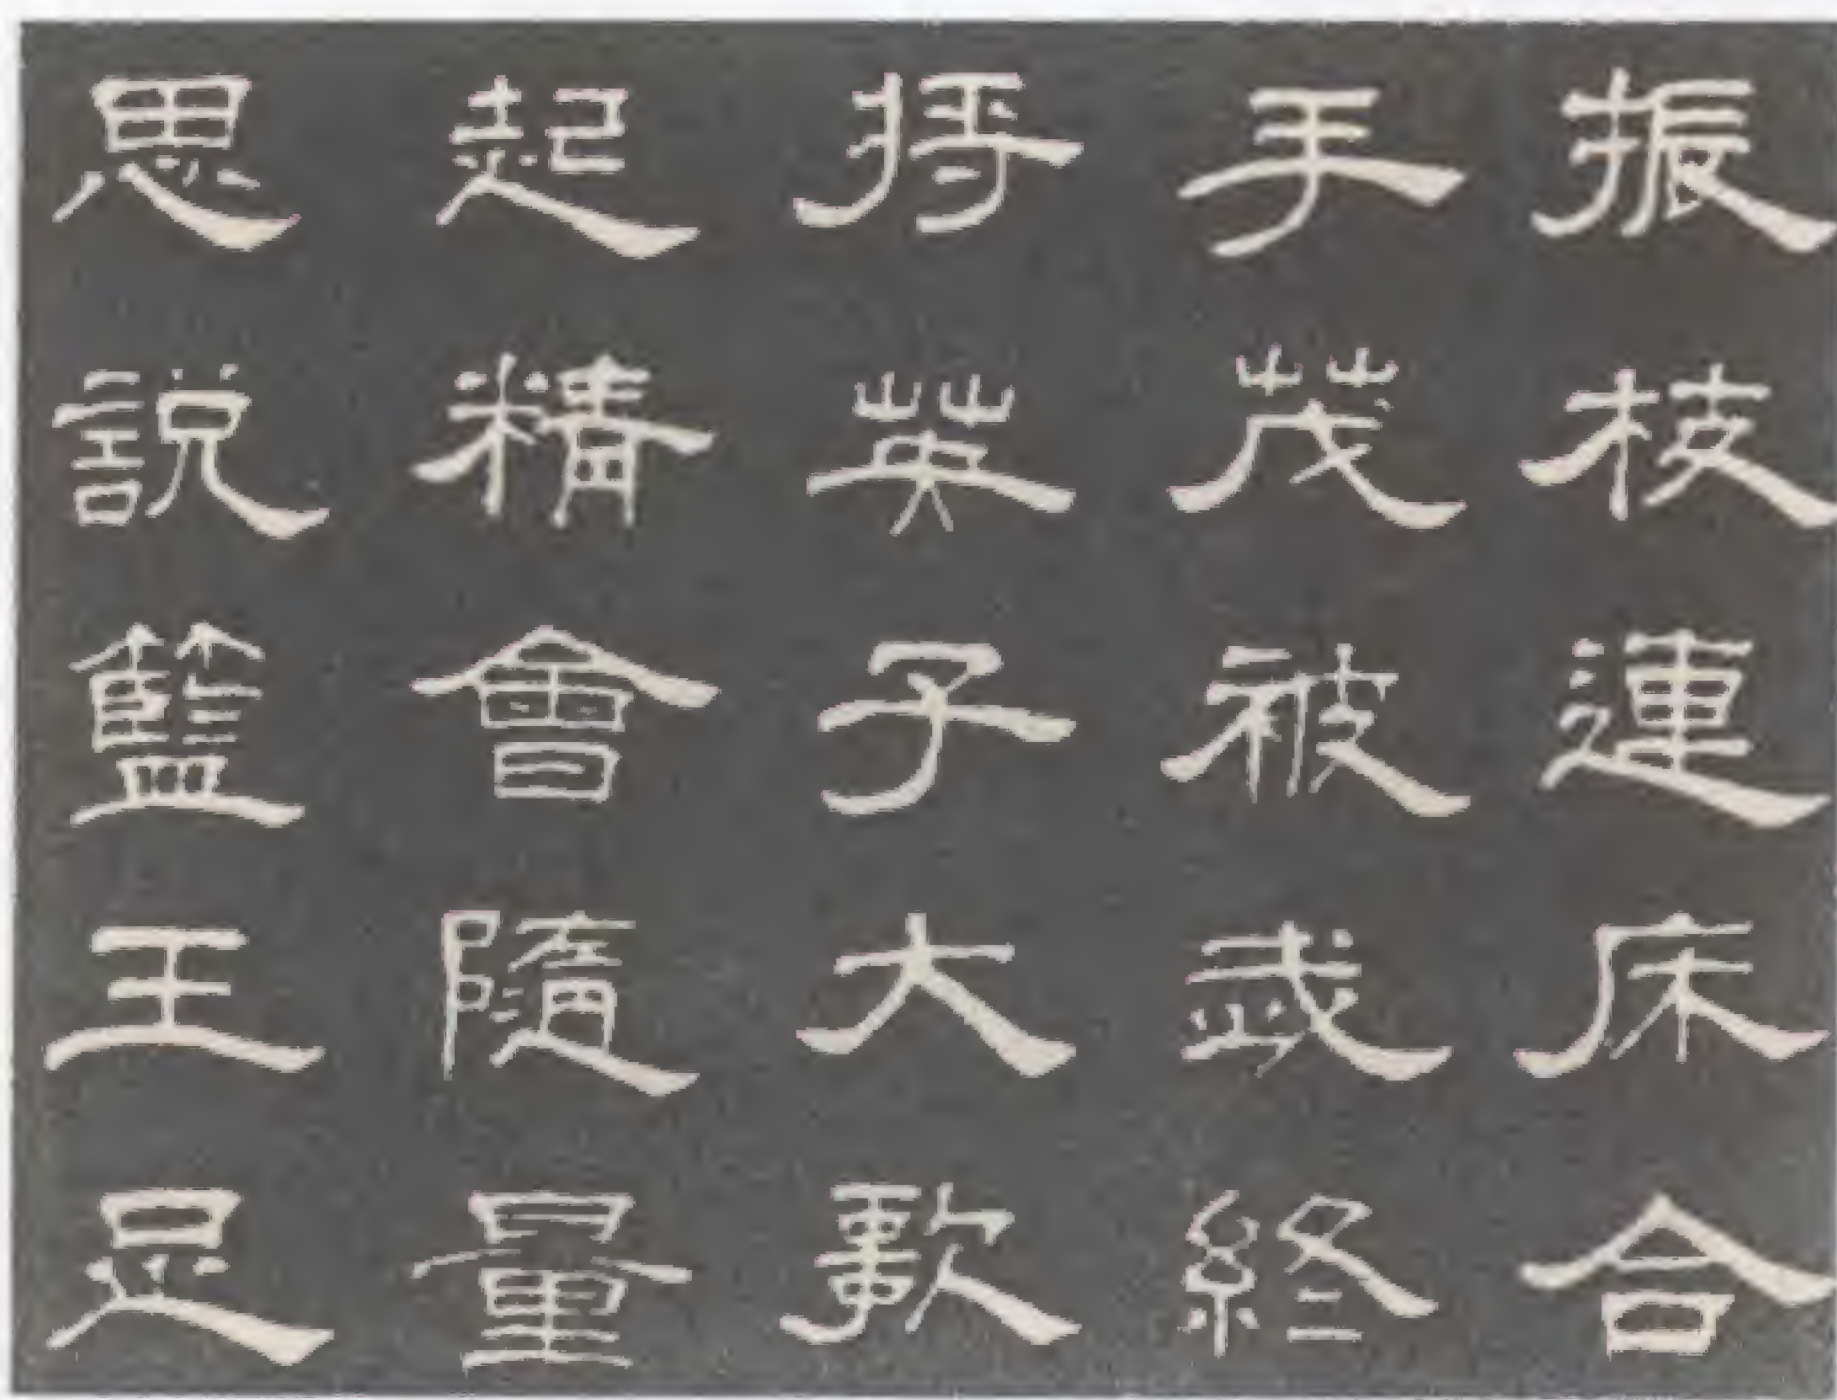 振枝連床合
手茂被武終
英子大
起精會隨量
思說籃王是